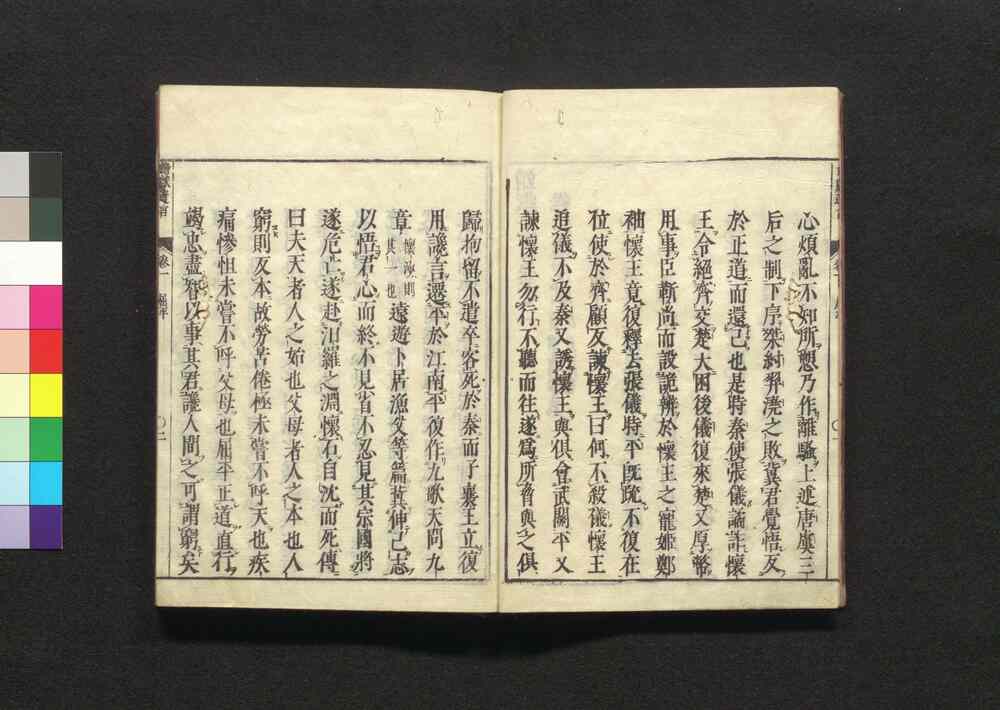 心煩亂不知所愬乃作離騷上述唐虞三
后之制下序桀紂羿澆之敗冀君覺悟反
於正道而還己也是時秦使張儀譎詐懷
王令絕齊交楚大困後儀復來楚又厚幣
用事臣靳尚而設詭辨於懷王之寵姬鄭
袖懷王竟復釋去張儀時平既疏不復在
位使於齊顧反諫懷王曰何不殺張儀懷王
追儀不及秦又誘懷王與俱會武關平又
諫懷王勿行不聽而往遂爲所脅與之俱
歸拘留不遣卒客死於秦而子襄王立復
用讒言遷平於江南平復作九歌天問九
章懷沙則其一也遠遊卜居漁父等篇冀伸己志
以悟君心而終不見省不忍見其宗國將
遂危亡遂赴汨羅之淵懷石自沈而死傳
曰夫天者人之始也父母者人之本也人
窮則反本故勞苦倦極未嘗不呼天也疾
痛慘怛未嘗不呼父母也屈平正道直行
竭忠盡智以事其君讒人間之可謂窮矣
卷一
屈平
〇二